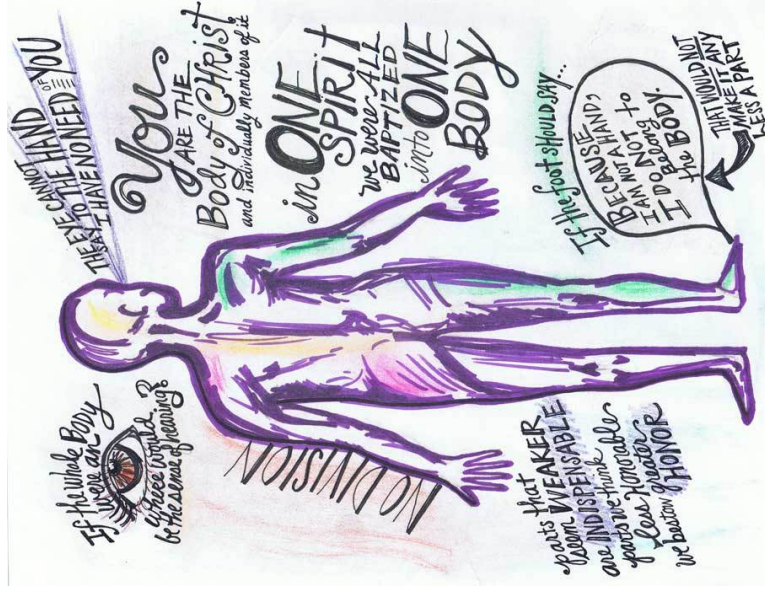 THE EYE CANNOT
SAY TO THE HAND
I HAVE NO NEED OF YOU
You
ARE THE
Body of CHRIST
and individually members of it
in ONE
SPIRIT
we were ALL
BAPTIZED
into ONE
BODY
If the foot should SAY...
BECAUSE
I AM NOT A HAND,
I AM NOT
I DO Belong to
the BODY.
THAT WOULD NOT
MAKE IT ANY
LESS A PART
If the whole Body
were an
where would
be the sense of hearing?
NO DIVISION
parts that
seem WEAKER
are INDISPENSABLE
parts we think
less Honorable
we bestow greater
HONOR